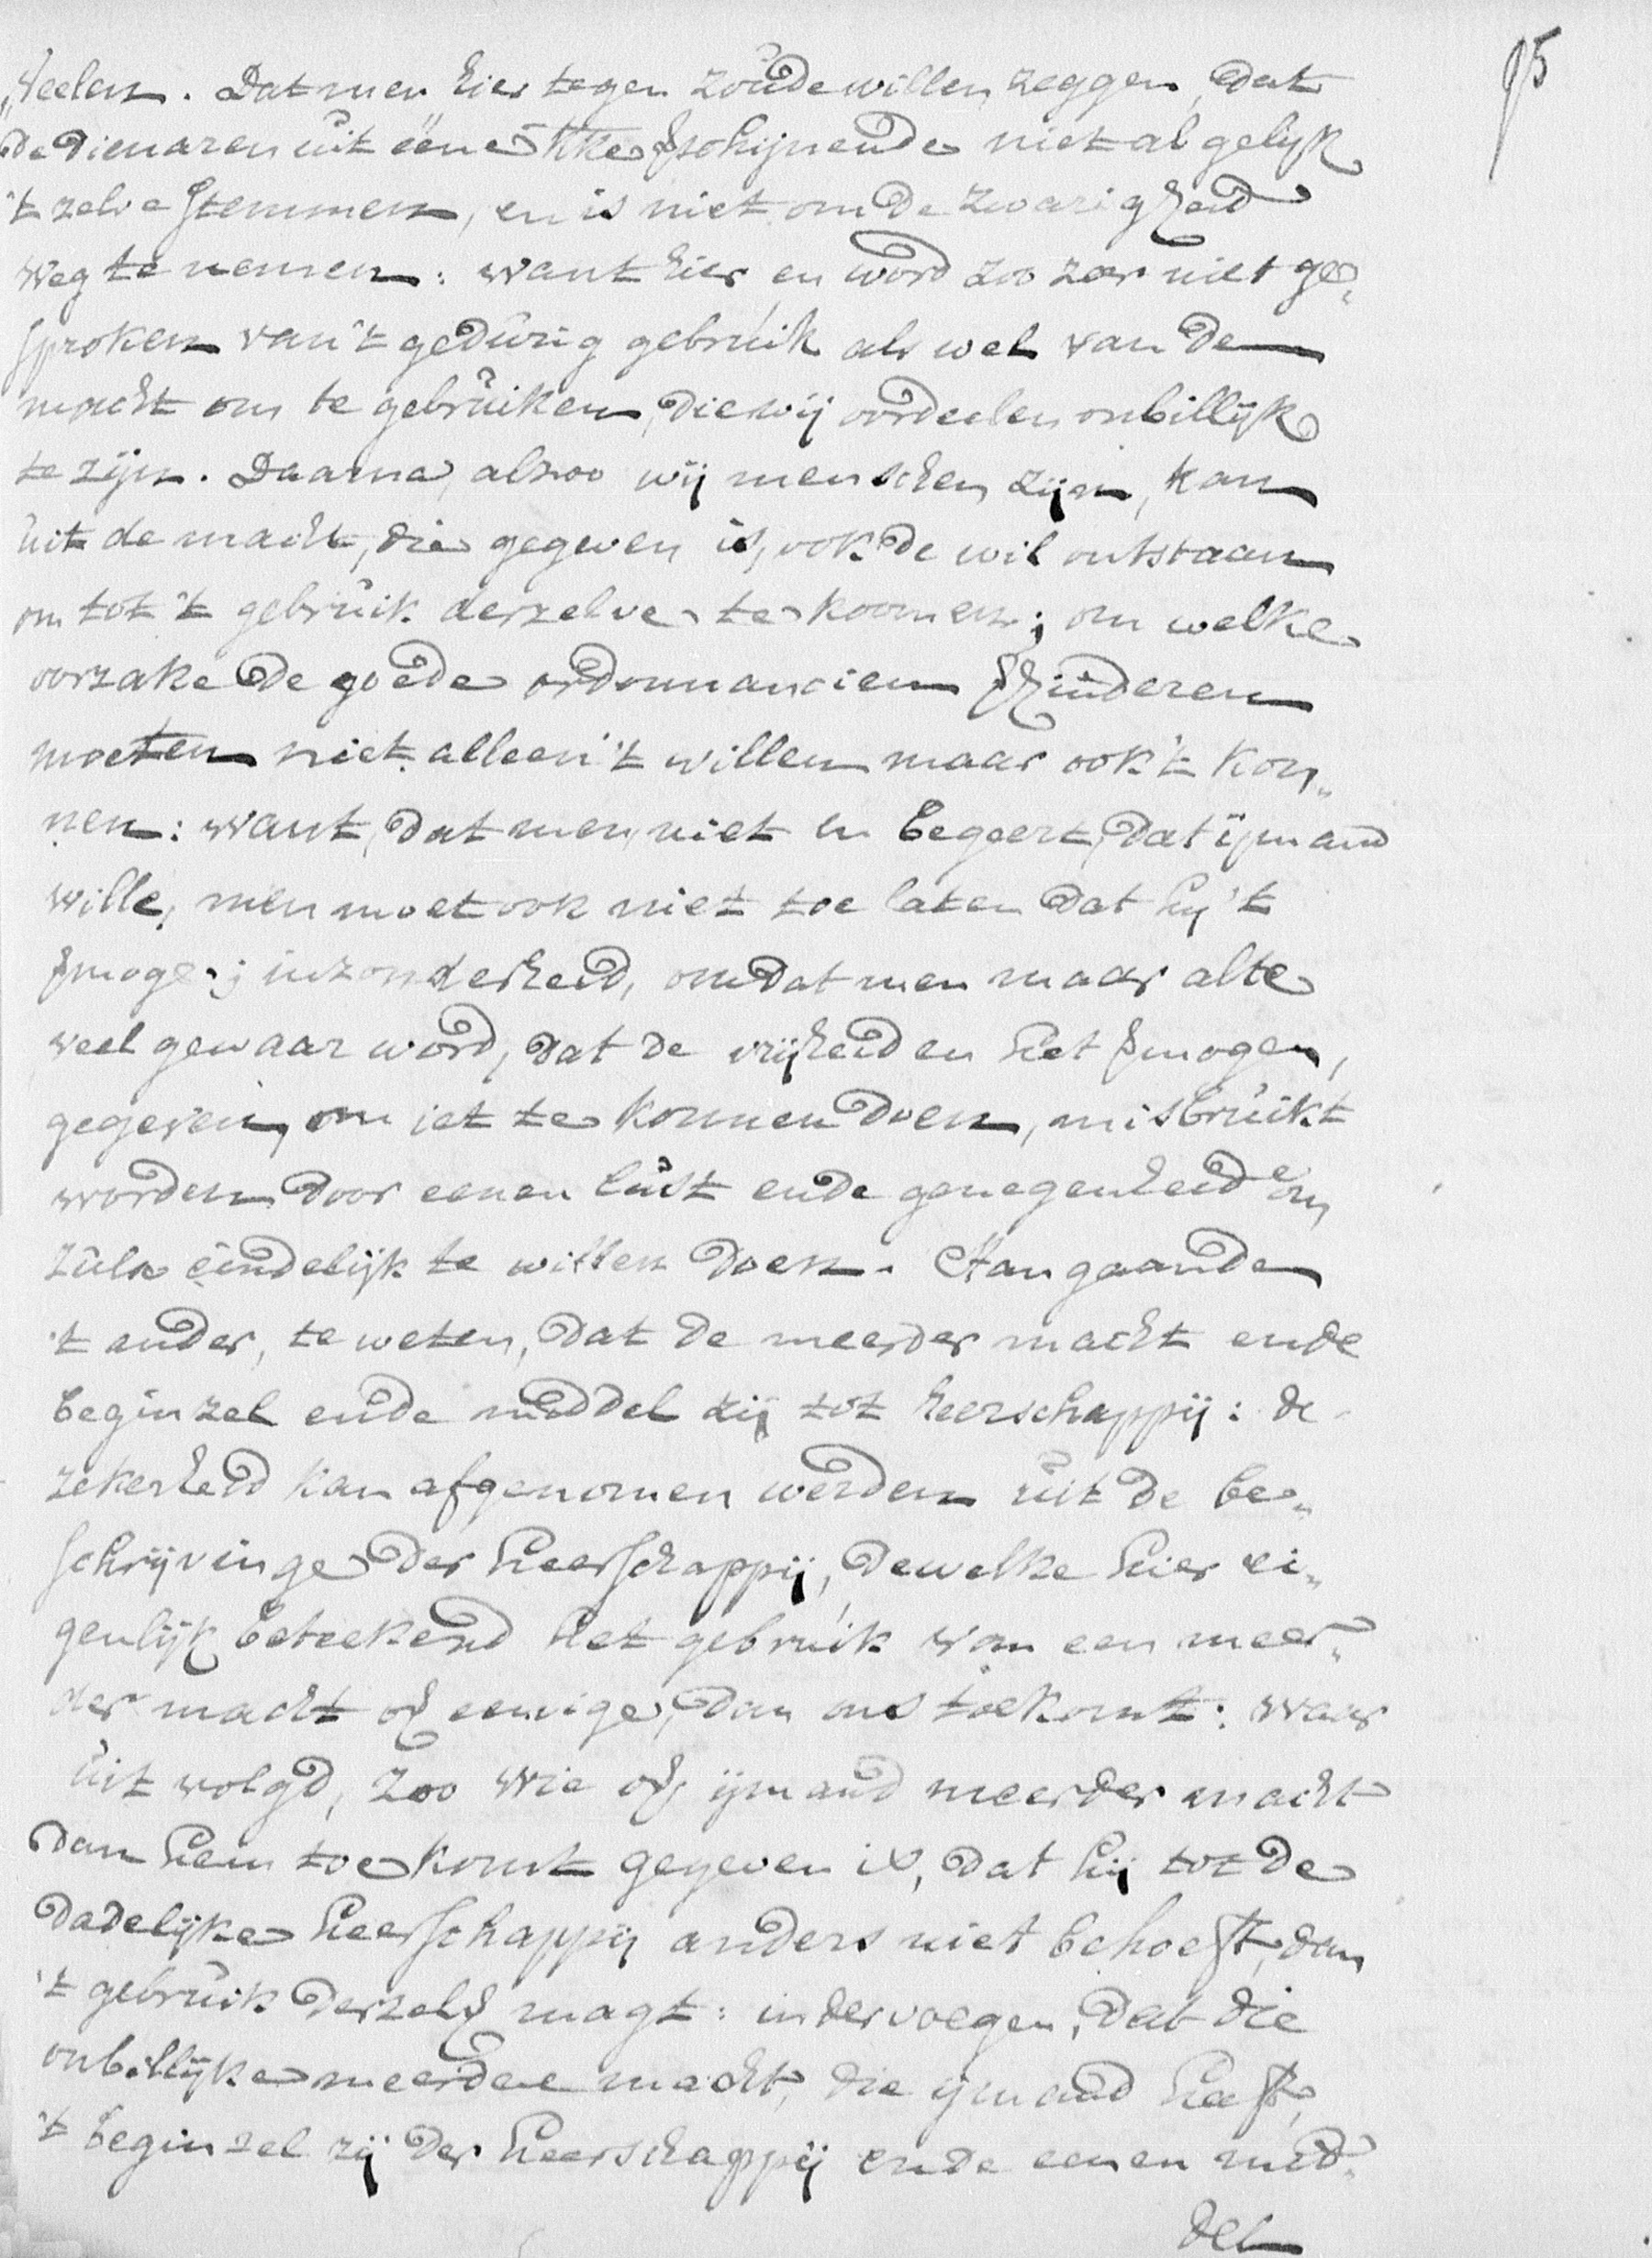 95
„veelen. Dat men hier tegen zoude willen zeggen, dat
de dienaren uit eene kke verschijnende niet al gelijk
't zelve stemmen, en is niet om de zwarigheid
weg te nemen: want hier en word zoo zeer niet ge„
sproken van 't gedurig gebruik als wel van de
macht om te gebruiken, die wij oordeelen onbillijk
te zijn. Daarna, alzoo wij menschen zijn, kan
uit de macht, die gegeven is, ook de wil ontstaan
om tot 't gebruik derzelve te koomen; om welke
oorzake de goede ordonnancien verhinderen
moeten niet alleen 't willen maar ook 't kon„
nen: want, dat men niet en begeert, dat ijmand
wille, men moet ook niet toe laten dat hij 't
vermoge; inzonderheid, omdat men maar alte
veel gewaar word, dat de vrijheid en het vermogen,
gegeven, om iet te konnen doen, misbruikt
worden door eenen lust ende genegenheid om
zulx eindelijk te willen doen. Aangaande
't ander, te weten, dat de meerder macht ende
beginzel ende middel zij tot heerschappij: de
zekerheid kan afgenomen werden uit de be„
schrijvinge der heerschappij, dewelke hier ei„
genlijk beteekend het gebruik van een meer„
der macht over eenige, dan ons toekomt: waar
uit volgd, zoo wie over ijmand meerder macht
dan hem toekomt gegeven is, dat hij tot de
dadelijke heerschappij anders niet behoeft, dan
't gebruik derzelver magt: indervoegen, dat die
onbillijke meerdere macht, die ijmand heeft,
't beginzel zij der heerschappij ende eenen mid„
del